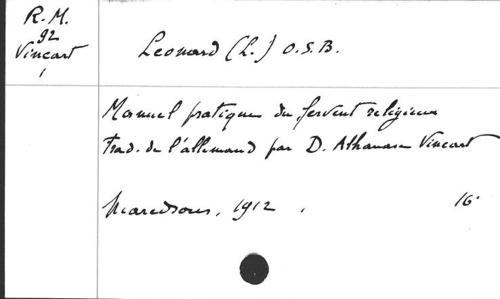 R.M.
92
Vincart
1
Leonard (L.) O.S.B.
Manuel pratique du fervent religieux
Trad. de l'allemand par D. Athanase Vincart
Maredsous, 1912, 16°